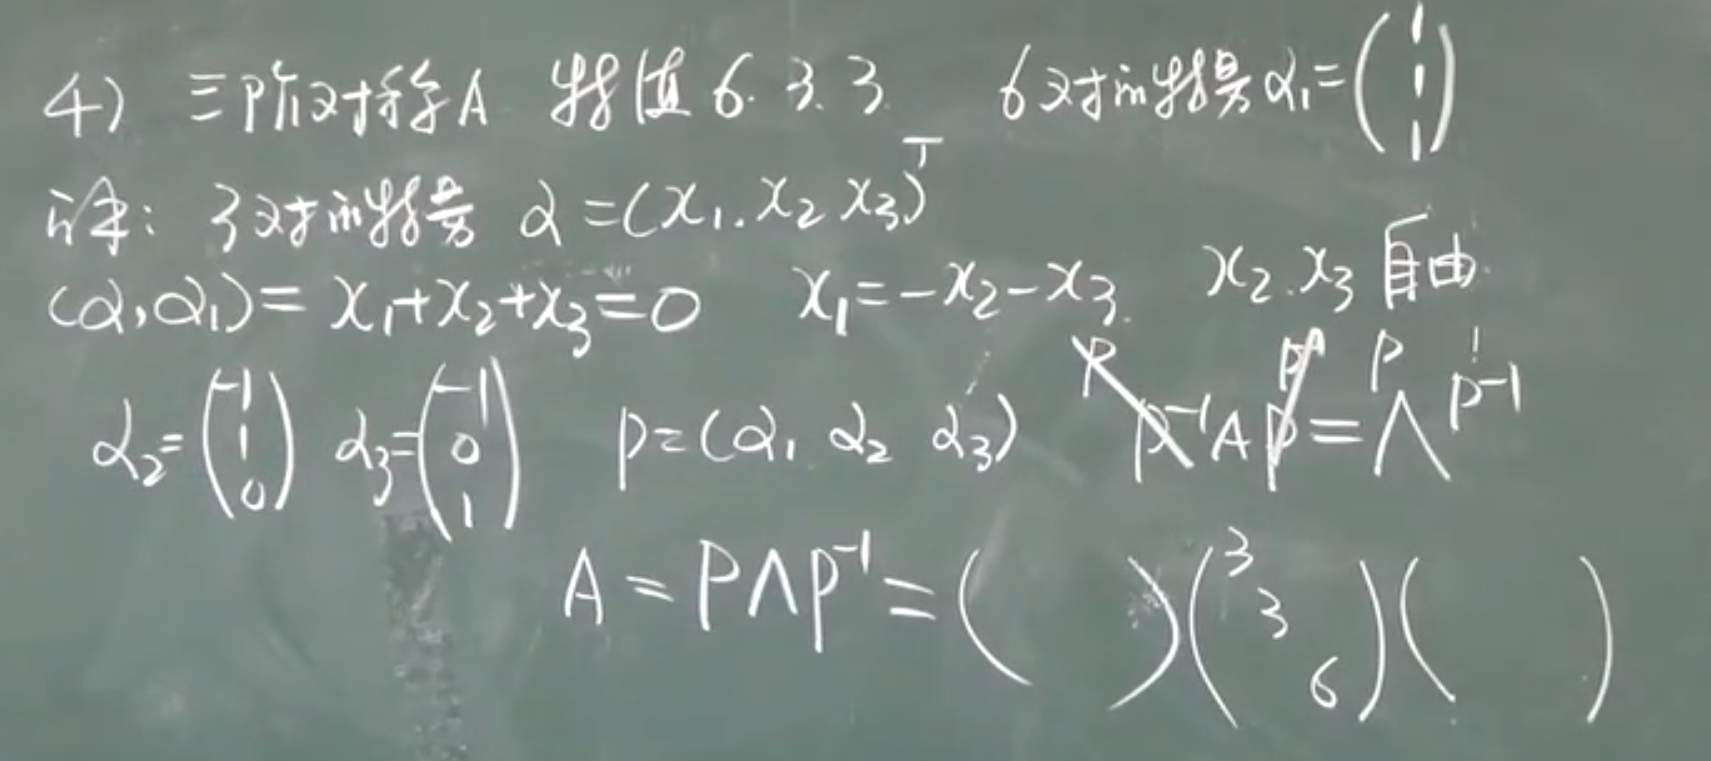 4) 三阶对称A 特值6.3.3 6对应特量α₁=(1 1 1)
求: 3对应特量 α=(x₁.x₂ x₃)ᵀ
(α,α₁)=x₁+x₂+x₃=0 x₁=-x₂-x₃. x₂.x₃自由.
α₂=(-1 1 0) α₃=(-1 0 1) P=(α₁ α₂ α₃) P P⁻¹AP P⁻¹=P Λ P⁻¹
A=PΛP⁻¹=( )(3 3 6)( )